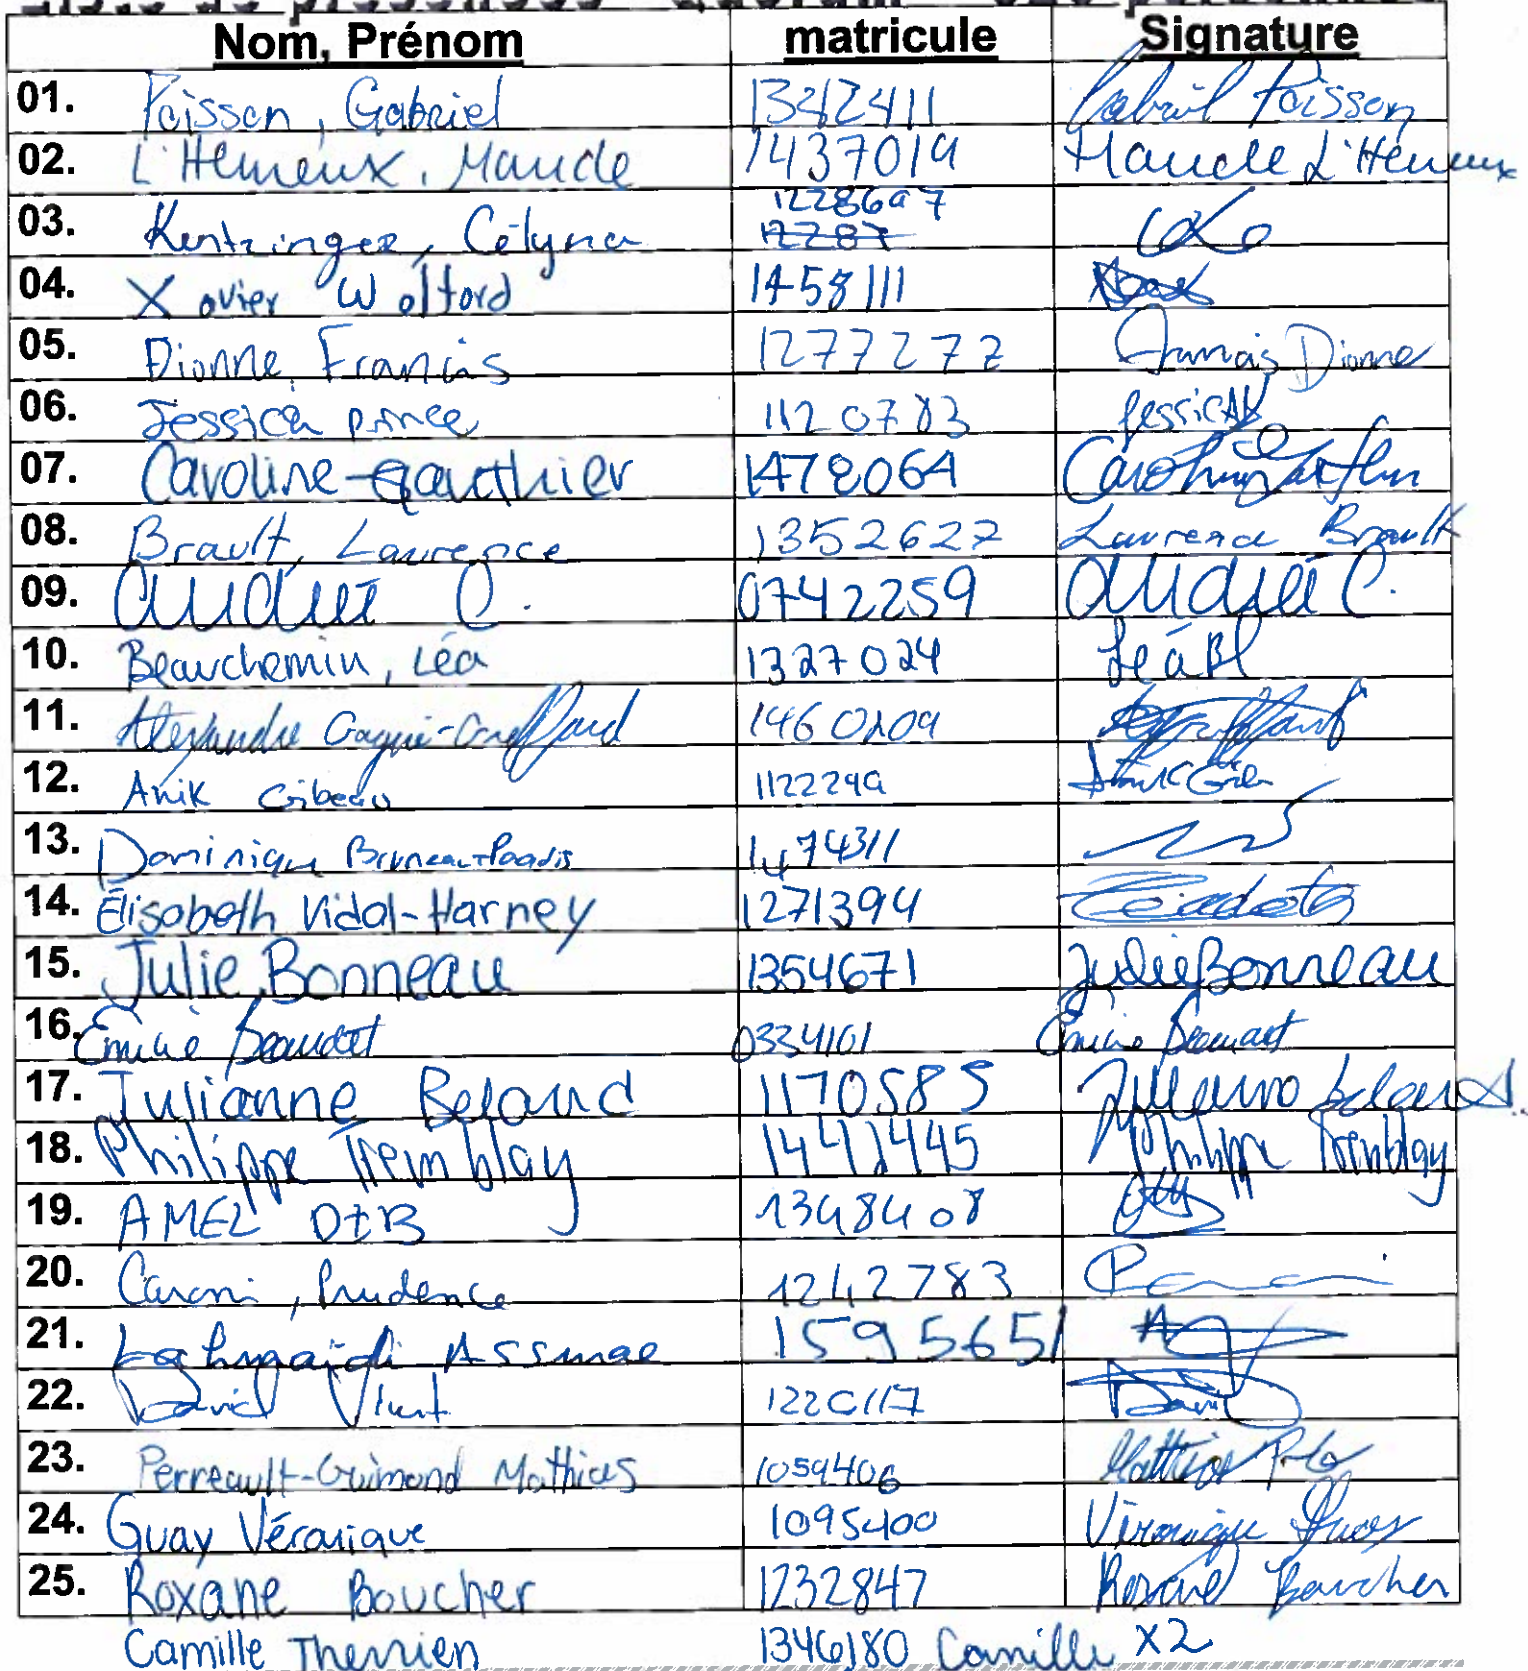 Liste de présences Quorum
Nom, Prénom matricule Signature
01. Poisson, Gabriel 1342411 Gabriel Poisson
02. L'Hemeux, Maude 1437019 Maude L'Hemeux
03. Kentzinger, Célyna 1228697
12287
04. Xavier Wolford 1458111
05. Dionne, Francis 1277272 Francis Dionne
06. Jessica Prince 1120783 Jessica
07. Caroline Gauthier 1478064 Caroline Gauthier
08. Brault, Laurence 1352627 Laurence Brault
09. Audreé C. 0742259 Audreé C.
10. Beauchemin, Léa 1327024 Léa Bl
11. Alexandre Gagné-Greffard
12. Anik Gibeau 1122299 Anik Gib
13. Dominique Bruneau-Paradis 1474311
14. Élisabeth Vidal-Harney 1271394
15. Julie Bonneau 1354671 Julie Bonneau
16. Émilie Beaudet 0334101 Émilie Beaudet
17. Julianne Béland 1170585 Julianne Béland
18. Philippe Tremblay 1441445 Philippe Tremblay
19. AMEL DIB 1348408
20. Caroni, Prudence 1242783
21. Lashmaidi Assmae 1595651
22. David 1220117 David
23. Perreault-Guimond Mathias 1059406 Matthias
24. Guay Véronique 1095400 Véronique Guay
25. Roxane Boucher 1232847 Roxane Boucher
Camille Therrien 1346180 Camille x2